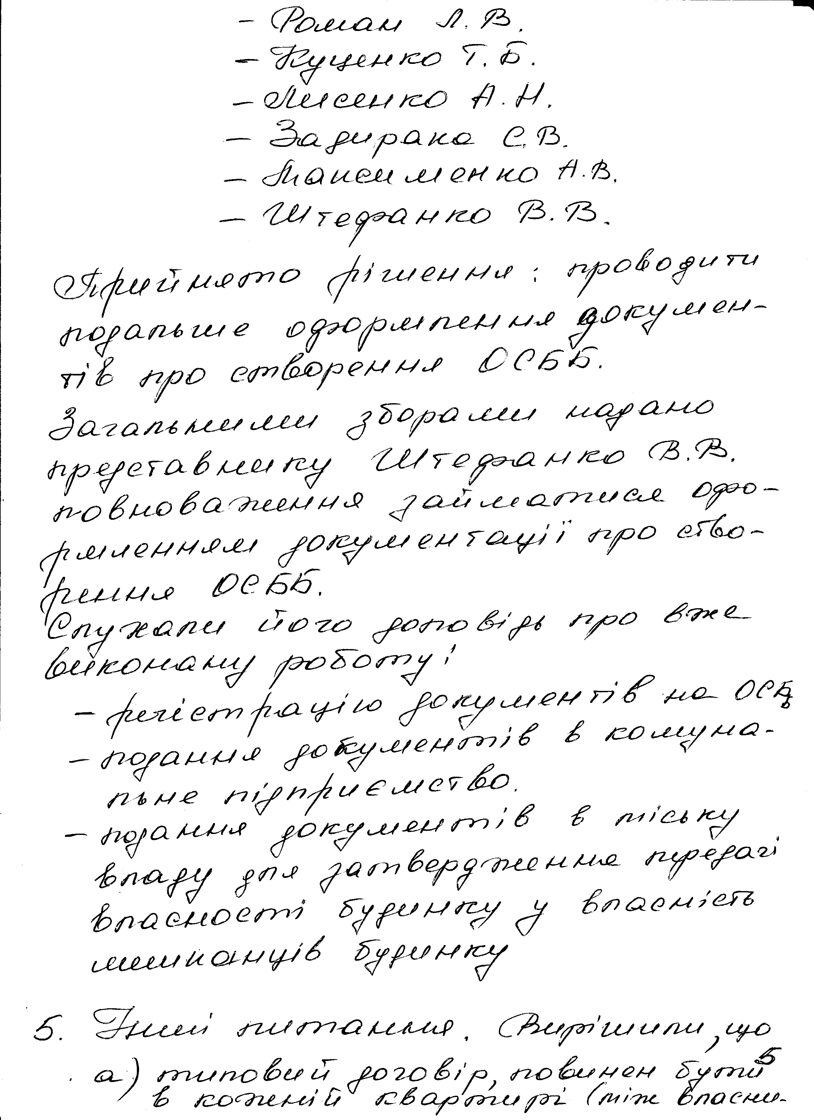 – Роман Л. В.
– Куценко Т. Б.
– Лисенко А. Н.
– Задирака С. В.
– Максименко А. В.
– Штефанко В. В.
Прийнято рішення: проводити
подальше оформлення докумен-
тів про створення ОСББ.
Загальними зборами надано
представнику Штефанко В. В.
повноваження займатися офо-
рмленням документації про ство-
рення ОСББ.
Слухали його доповідь про вже
виконану роботу:
– регістрацію документів на ОСББ
– подання документів в комуна-
льне підприємство.
– подання документів в міську
владу для затвердження передачі
власності будинку у власність
мешканців будинку
5. Інші питання. Вирішили, що
а) типовий договір, повинен бути
5
в кожній квартирі (між власни-